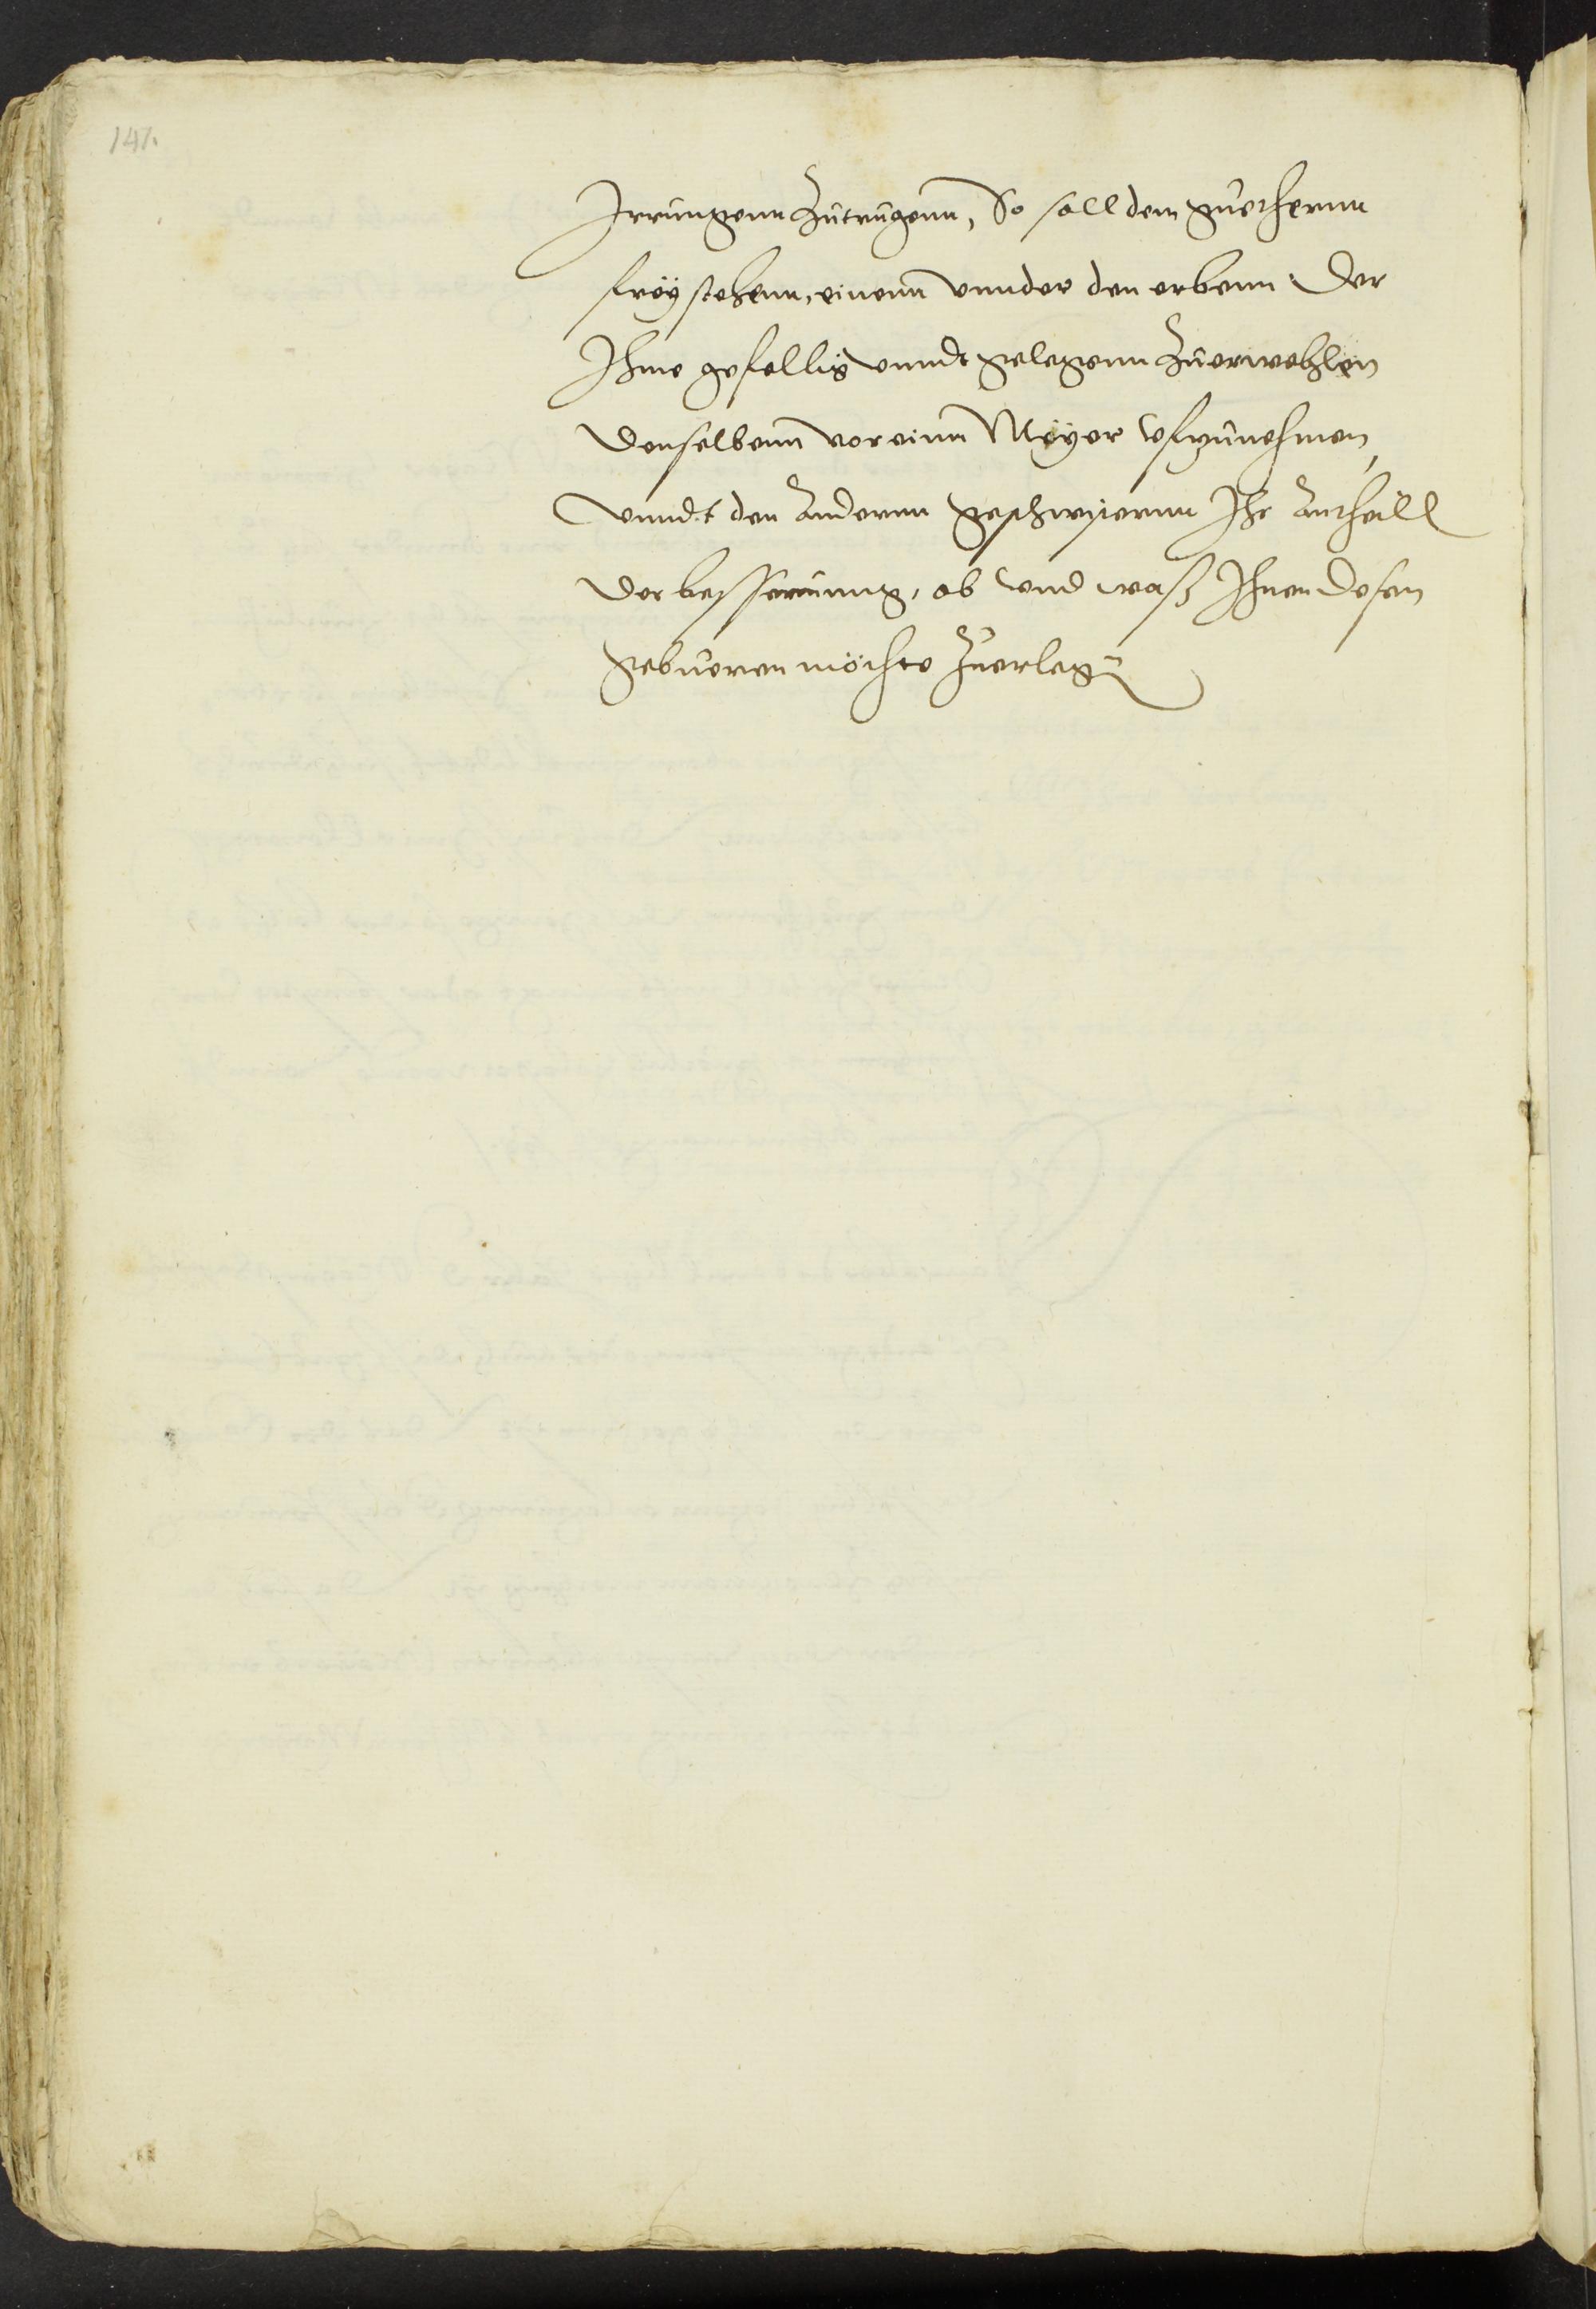 141.
Irrungenn Zutrugenn, So soll dem guethernn
freÿ stehenn, einenn vnnder den erbenn Der
Ihme gefellig vnndt gelegenn Zuerwehlen
Denselbenn vor einn Meÿer vfzunehmen,
vnndt den Andernn geschwistern Ihr Antheill
der besserunng, ob vnd waß Ihnen dessen
gebueren möchte Zuerleg